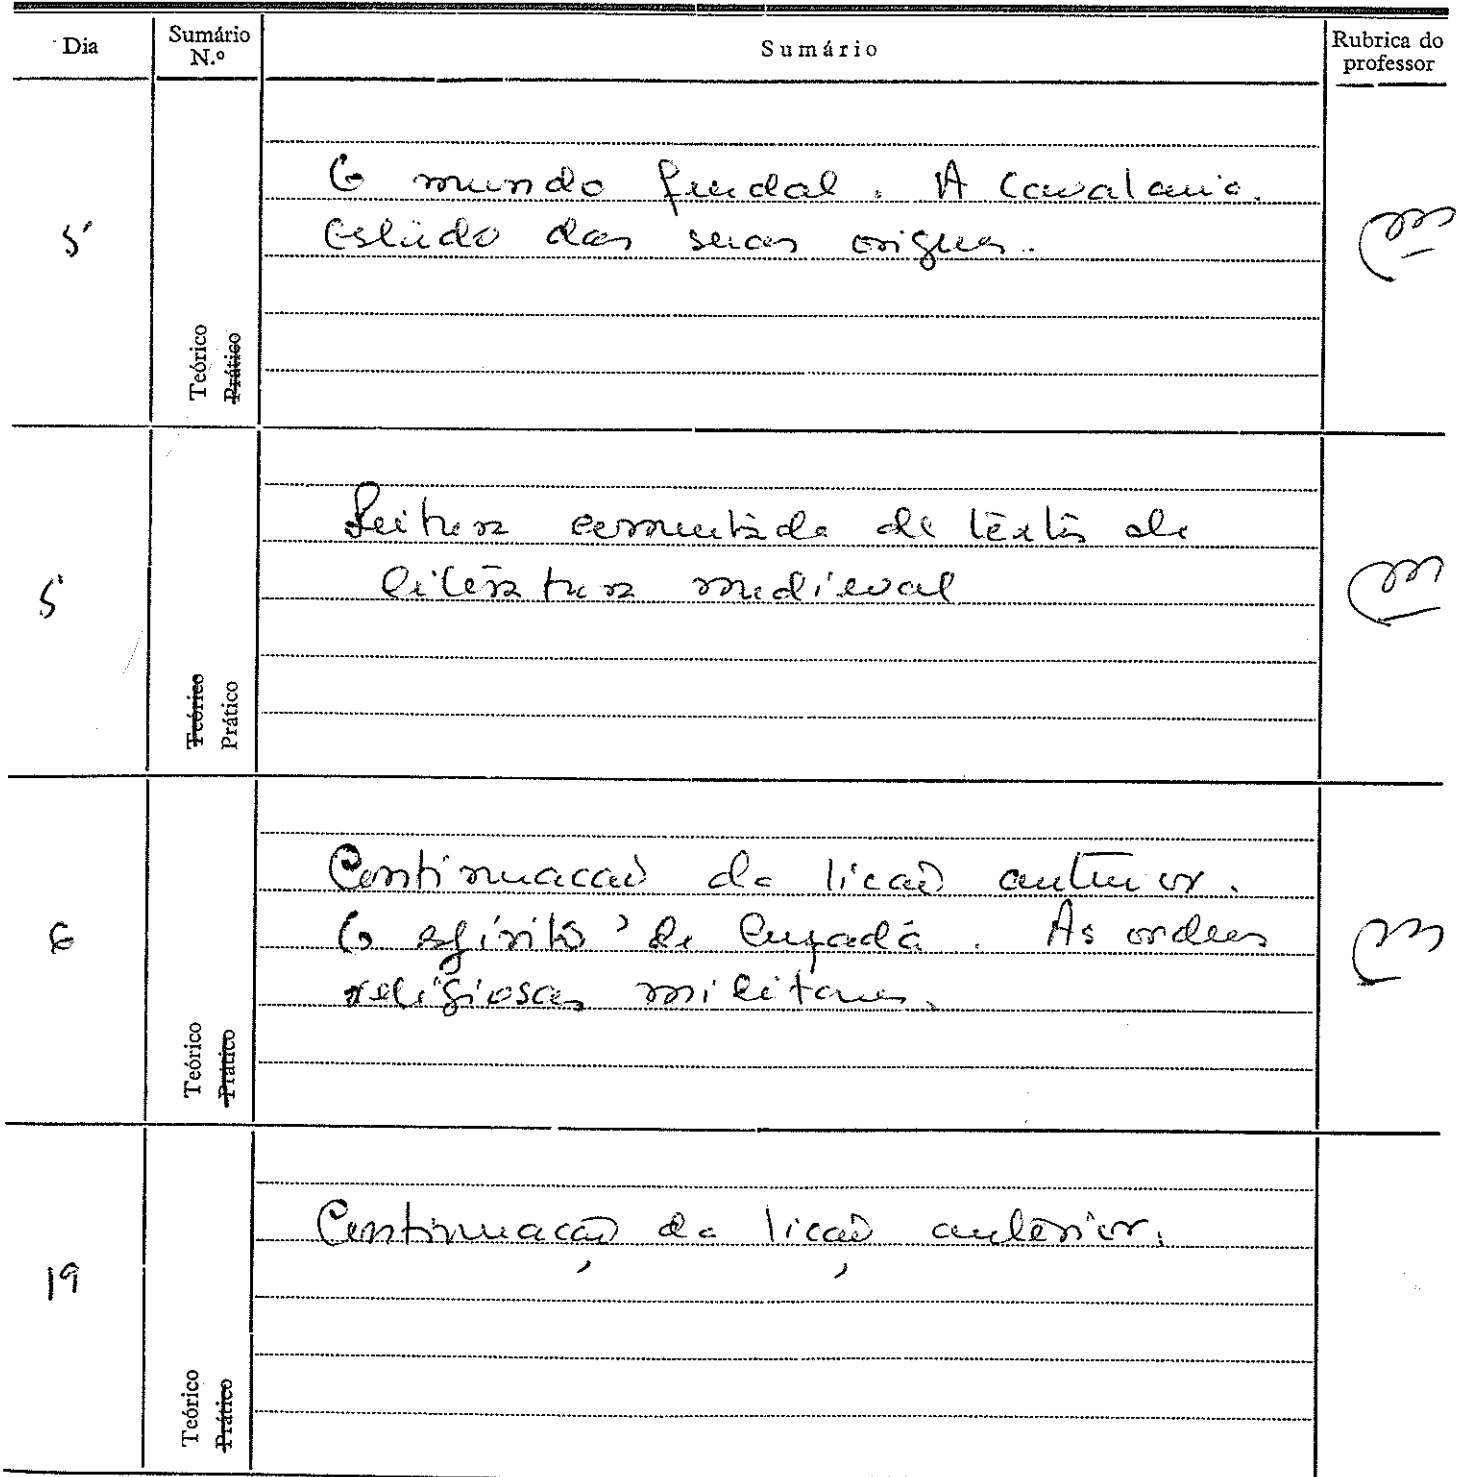 Dia
Sumário N.º
Sumário
Rubrica do professor
O mundo feudal. A Cavalaria.
5
Estudo das suas origens.
Teórico
Prático
Leitura comentada de textos de
5
literatura medieval
Teórico
Prático
Continuacão da licão anterior.
6
O espírito de Cruzada. As ordens
religiosas militares.
Teórico
Prático
Continuação da lição anterior.
19
Teórico
Prático